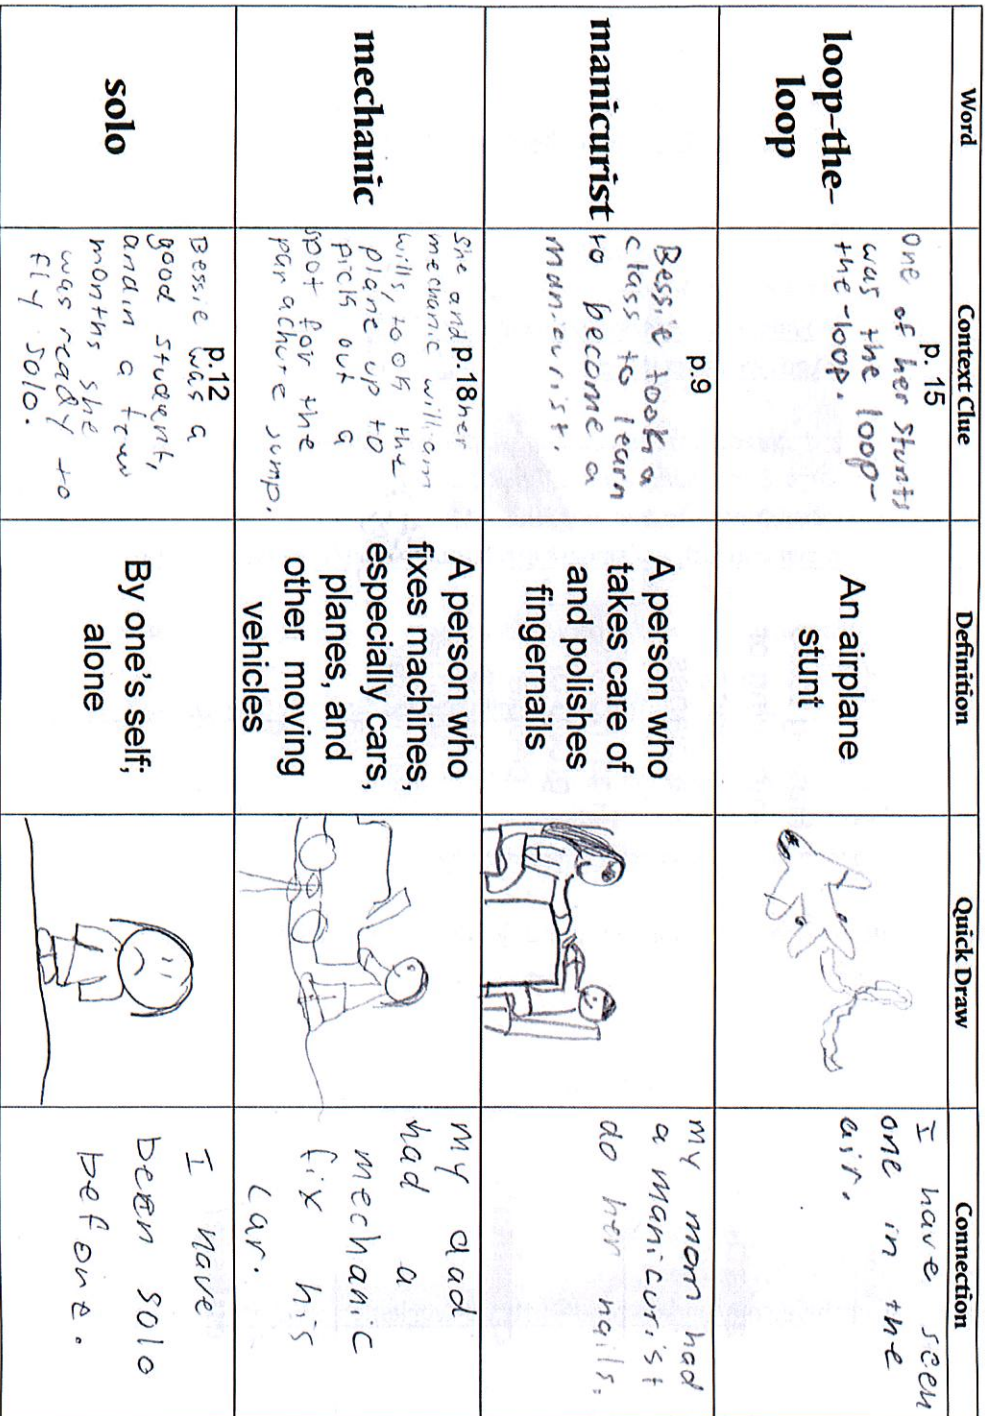 Word
Context Clue
Definition
Quick Draw
Connection
loop-the-
loop
p. 15
One of her stunts
was the loop-
the-loop.
An airplane
stunt
I have seen
one in the
air.
manicurist
p.9
Bessie took a
class to learn
to become a
man-eurist.
A person who
takes care of
and polishes
fingernails
my mom had
a manicurist
do her nails.
mechanic
p.18
she and her
mechanic william
wills, took the
plane up to
pick out a
spot for the
parachure jump.
A person who
fixes machines,
especially cars,
planes, and
other moving
vehicles
my dad
had a
mechanic
fix his
car.
solo
p.12
Bessie was a
good student,
and in a few
months she
was ready to
fly solo.
By one's self;
alone
I have
been solo
before.